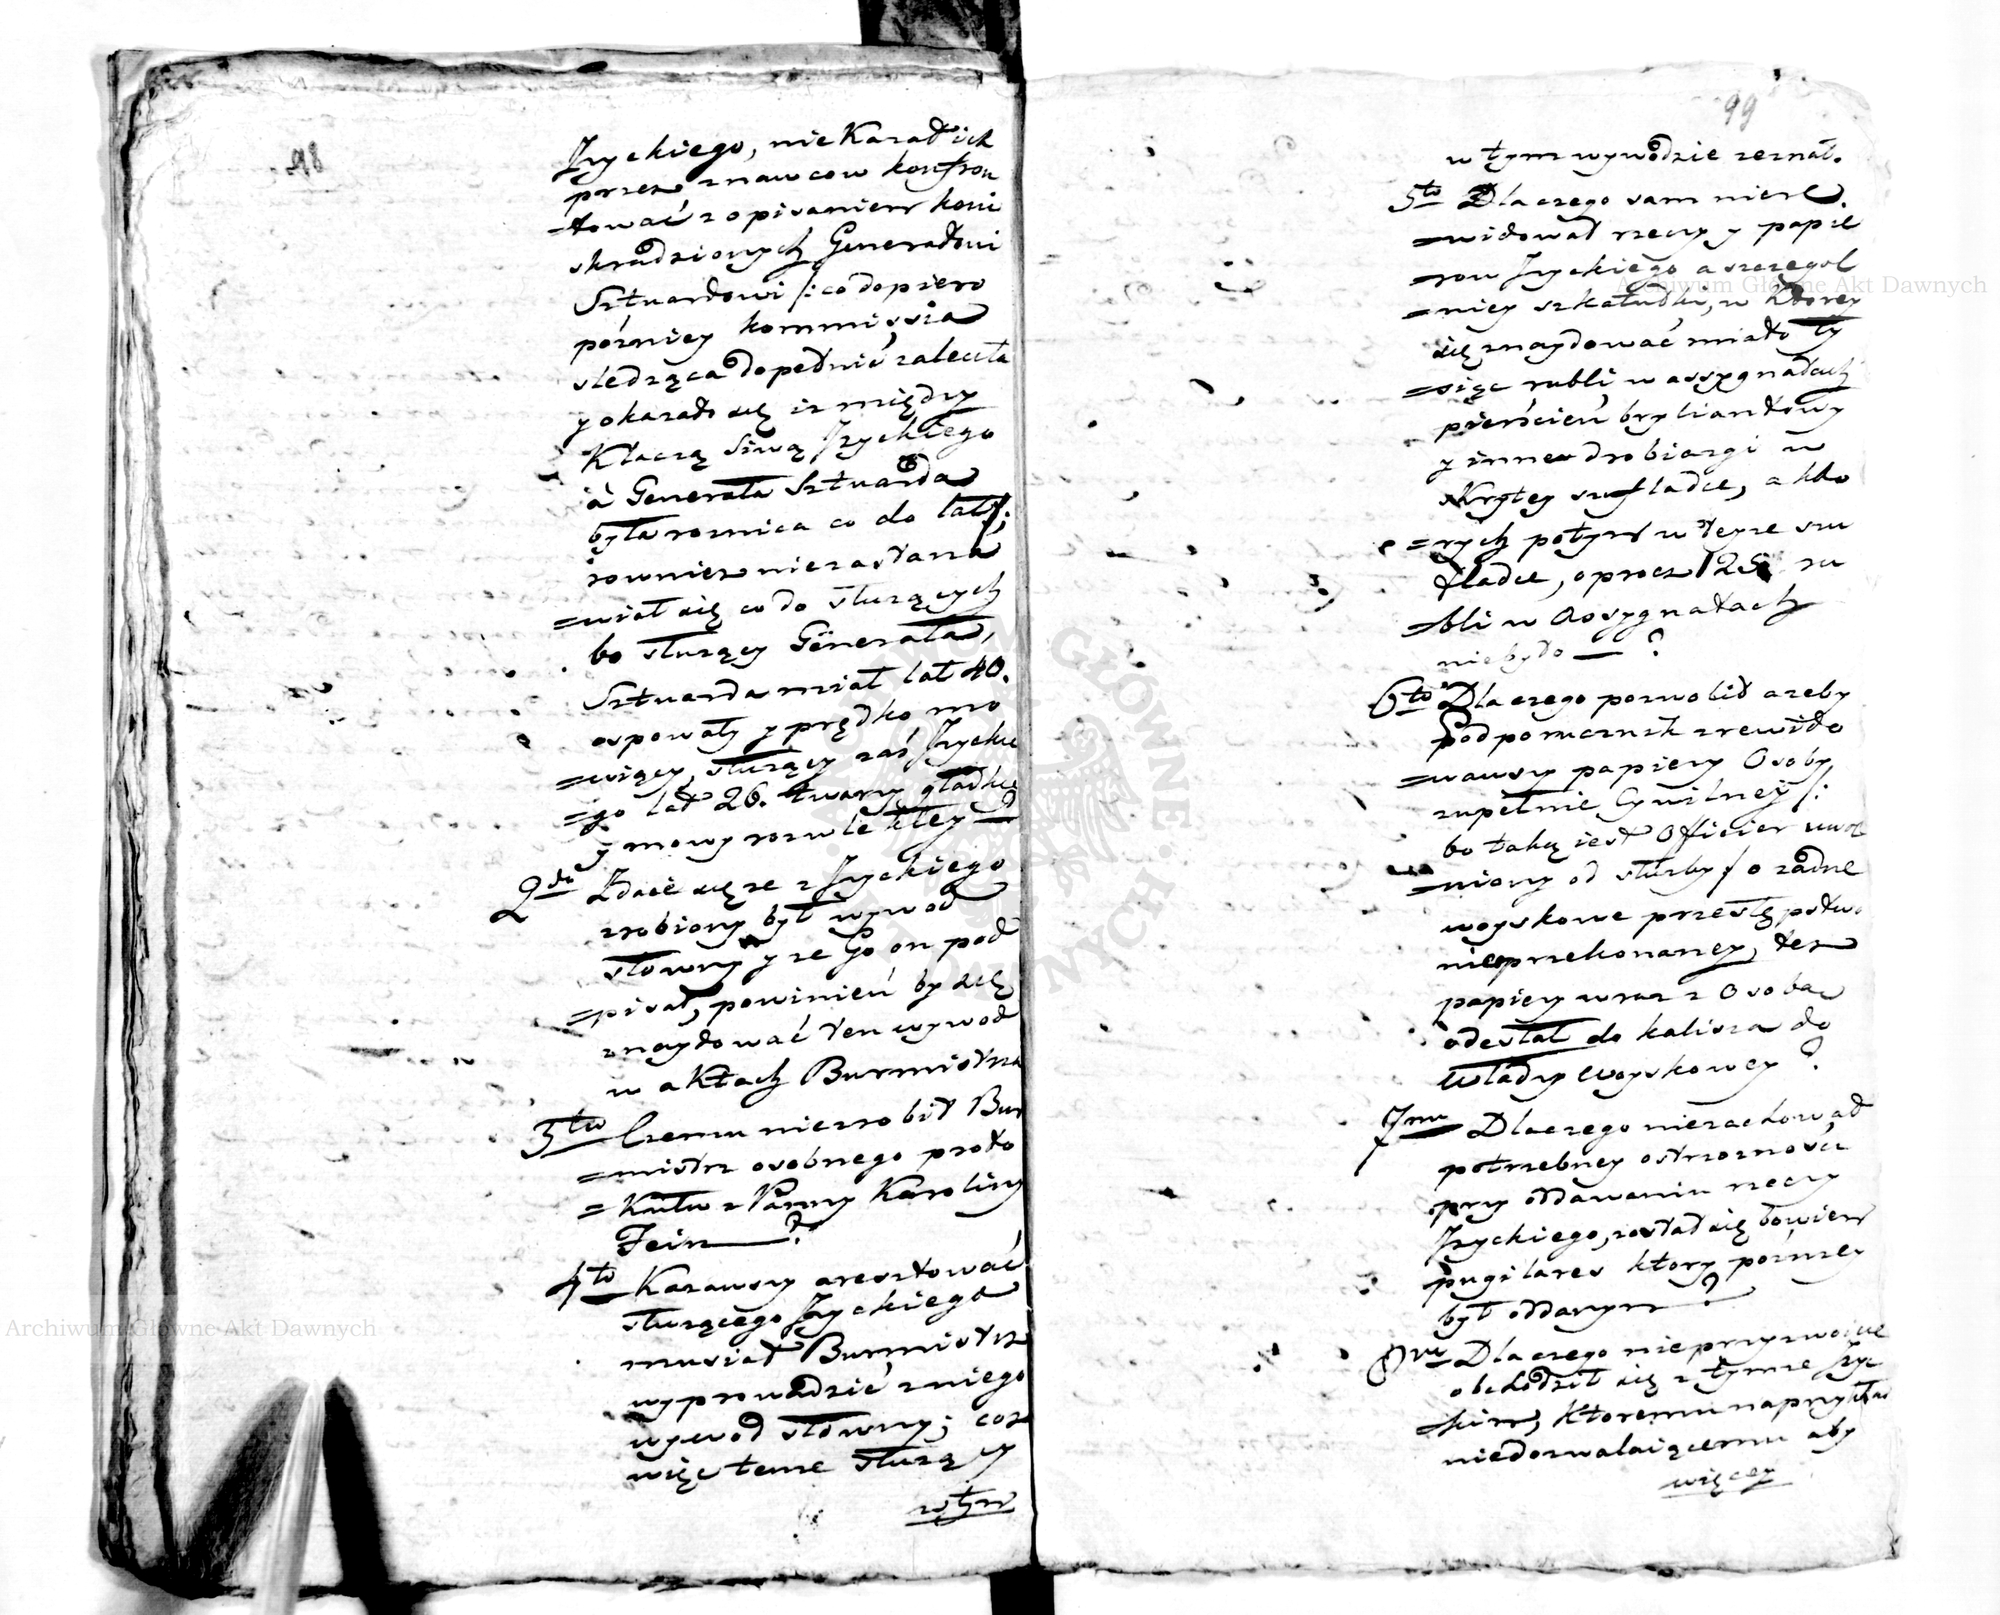 98
Jzyckiego, nie Kazał ich
przez znawcow konfron
=tować z opisaniem koni
skradzionych Generałowi
Sztuardowi /: co dopiero
pózniey kommissia
sledząca dopełnić zaleciła
y okazało się iz między
Klaczą Siwą Jzyckiego
à Generała Sztuarda
była roznica co do lat;
rownież nie zastana
=wiał się co do służących
bo służący Generała,
Sztuarda miał lat 40.
ospowaty y prędko mo
=wiący, służący zaś Jzyckie
=go lat 26. twarzy gładkiey
y mowy rozwlekłey ?
2do Zdaie się ze z Jzyckiego
zrobiony był wywod
słowny y ze go on pod
=pisał, powinień by się
znaydować ten wywod
w aktach Burmistrza
3tio Czemu nie zrobił Bur
=mistrz osobnego proto
=kułu z Panny Karoliny
Fein ?
4to Kazawszy aresztować
służącego Jzyckiego
musiał Burmistrz
wyprowadzić z niego
wywod słowny; coz
więc tenze służący
w tym
99
w tym wywodzie zeznał.
5to Dla czego sam nie re
=widował rzeczy y papie
=row Jzyckiego a szczegol
=niey szkatułki, w ktorey
się znaydować miało ty
=siąc rubli w assygnatach
pierścień bryliantowy
y inne drobiazgi w
skrytey szufladce, a kto
=rych potym w teyze szu
fladce, oprocz 125 ru
=bli w Assygnatach
nie było — ?
6to Dla czego pozwolił azeby
Podporucznik zrewido
=wawszy papiery Osoby
zupełnie Cywilney /:
bo taką iest Officier uwol
=niony od służby / o żadne
woyskowe przestępstwo
nieprzekonaney, tez
papiery wraz z Osobą
odesłał do kalisza do
władzy woyskowey ?
7mo Dlaczego niezachował
potrzebney ostrozności
przy oddawaniu rzeczy
Jzyckiego, został się bowiem
pugilares ktory pózniey
był oddanym ?
8vo Dla czego nieprzyzwoicie
obchodził się z tymze Jzyc
=kim, ktoremu naprzykład
niedozwalaiącemu aby
więcey
Archiwum Główne Akt Dawnych
Archiwum Główne Akt Dawnych
ARCHIWUM GŁÓWNE AKT DAWNYCH